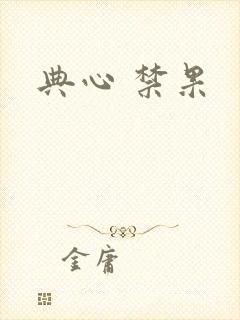 典心 禁果
金庸